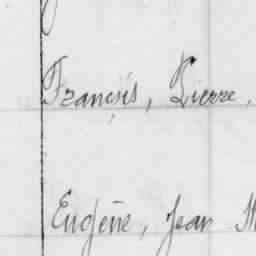 François, Pierre,
Eugène, Jean